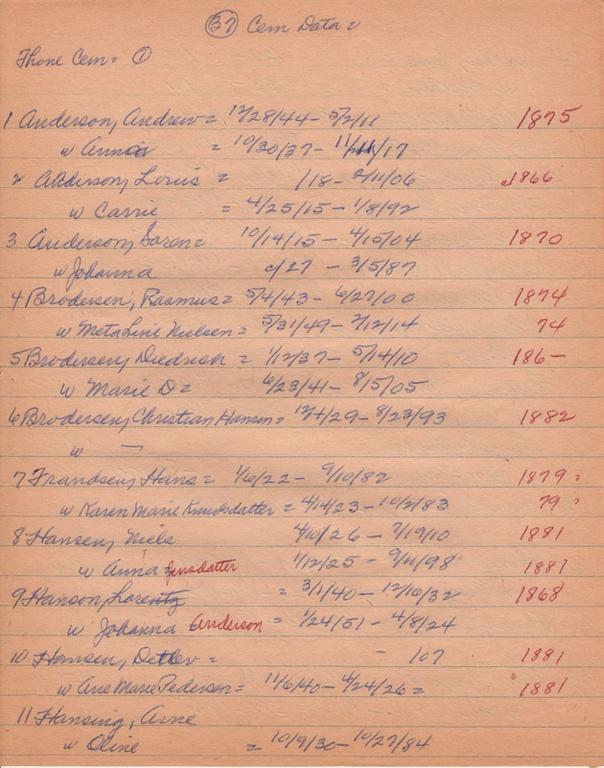 (37) Cem Data =
Thone Cem = ①
1 Anderson, Andrew = 12/28/44 - 5/2/11 1875
w Anna = 10/30/37 - 11/11/17
2 Anderson, Louis = /18 - 2/11/06 c/1866
w Carrie = 4/25/15 - 1/8/92
3 Anderson, Soren = 10/14/15 - 4/15/04 1870
w Johanna c/27 - 3/5/87
4 Brodersen, Rasmus = 5/4/43 - 6/27/00 1874
w Meta Line Nielsen = 5/31/49 - 7/12/14 74
5 Brodersen, Diedrich = 1/12/37 - 5/14/10 186-
w Marie D = 6/23/41 - 8/5/05
6 Brodersen, Christian Hansen = 12/4/29 - 8/23/93 1882
w —
7 Frandsen, Hans = 1/6/22 - 9/10/82 1879 ?
w Karen Marie Knudsdatter = 4/14/23 - 10/2/83 79 ?
8 Hansen, Niels 4/10/26 - 7/19/10 1881
w Anna Jensdatter 1/12/25 - 9/11/98 1881
9 Hanson, Lorentz = 3/1/40 - 12/16/32 1868
w Johanna Anderson = 1/24/51 - 4/8/24
10 Hansen, Detlev = - 107 1881
w Ane Marie Pedersen = 11/6/40 - 4/24/26 = 1881
11 Hansing, Arne
w Oline = 10/9/30 - 10/27/84